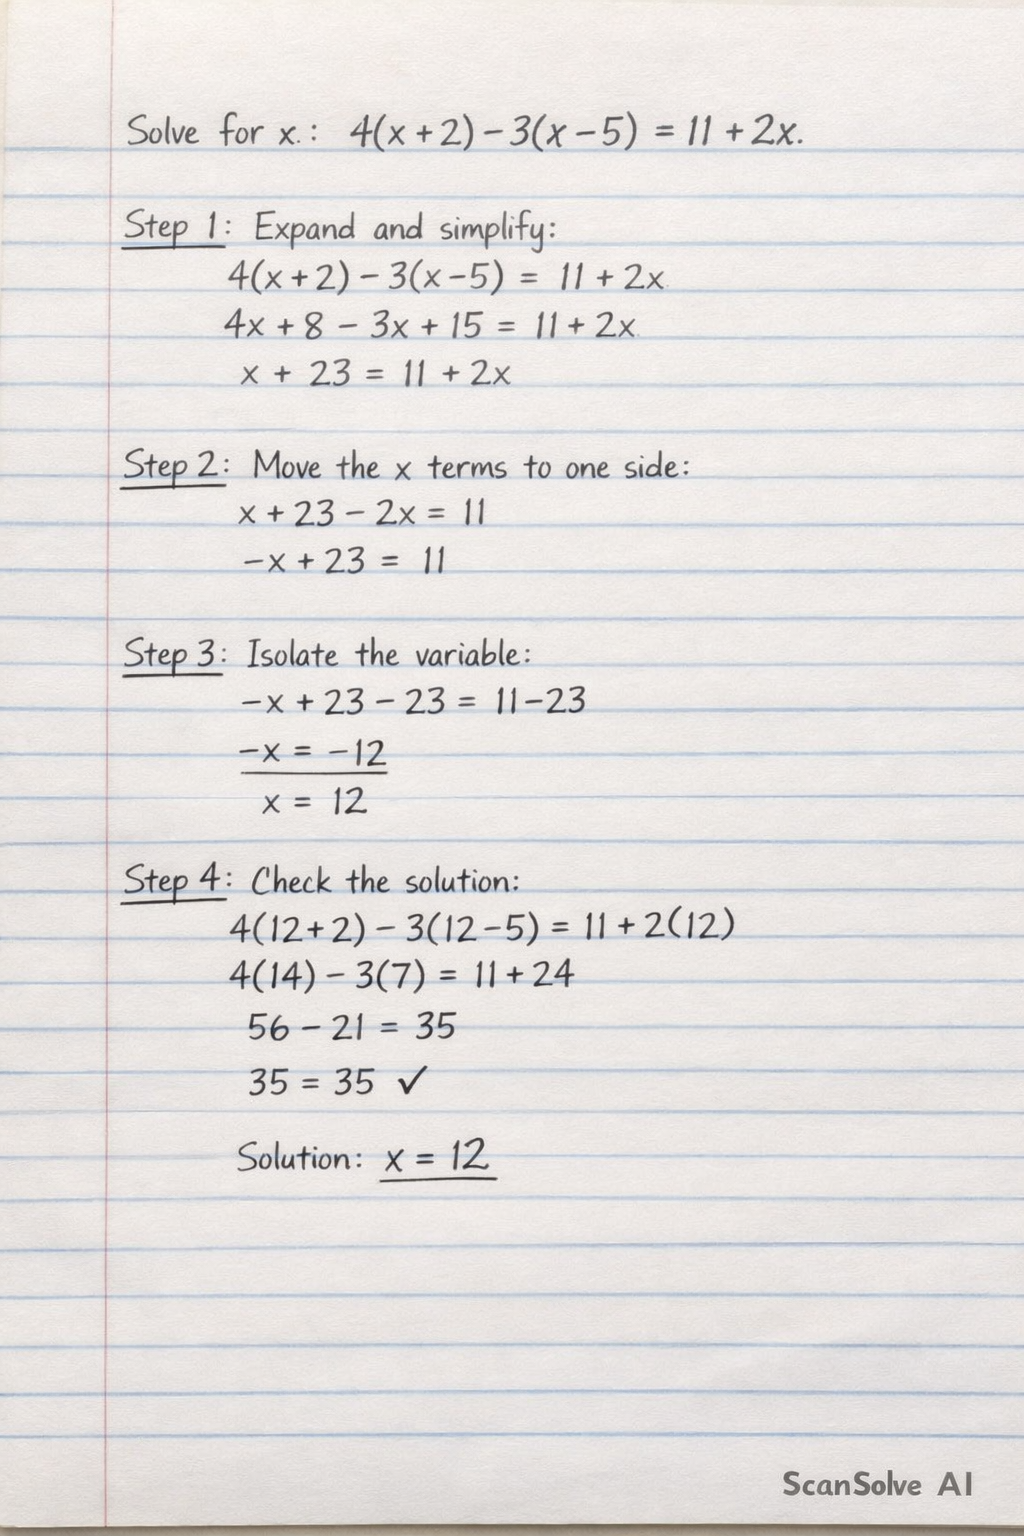 Solve for x.: 4(x + 2) – 3(x – 5) = 11 + 2x.
Step 1: Expand and simplify:
4(x + 2) – 3(x – 5) = 11 + 2x
4x + 8 – 3x + 15 = 11 + 2x
x + 23 = 11 + 2x
Step 2: Move the x terms to one side:
x + 23 – 2x = 11
–x + 23 = 11
Step 3: Isolate the variable:
–x + 23 – 23 = 11 – 23
–x = –12
x = 12
Step 4: Check the solution:
4(12 + 2) – 3(12 – 5) = 11 + 2(12)
4(14) – 3(7) = 11 + 24
56 – 21 = 35
35 = 35 ✓
Solution: x = 12
ScanSolve AI